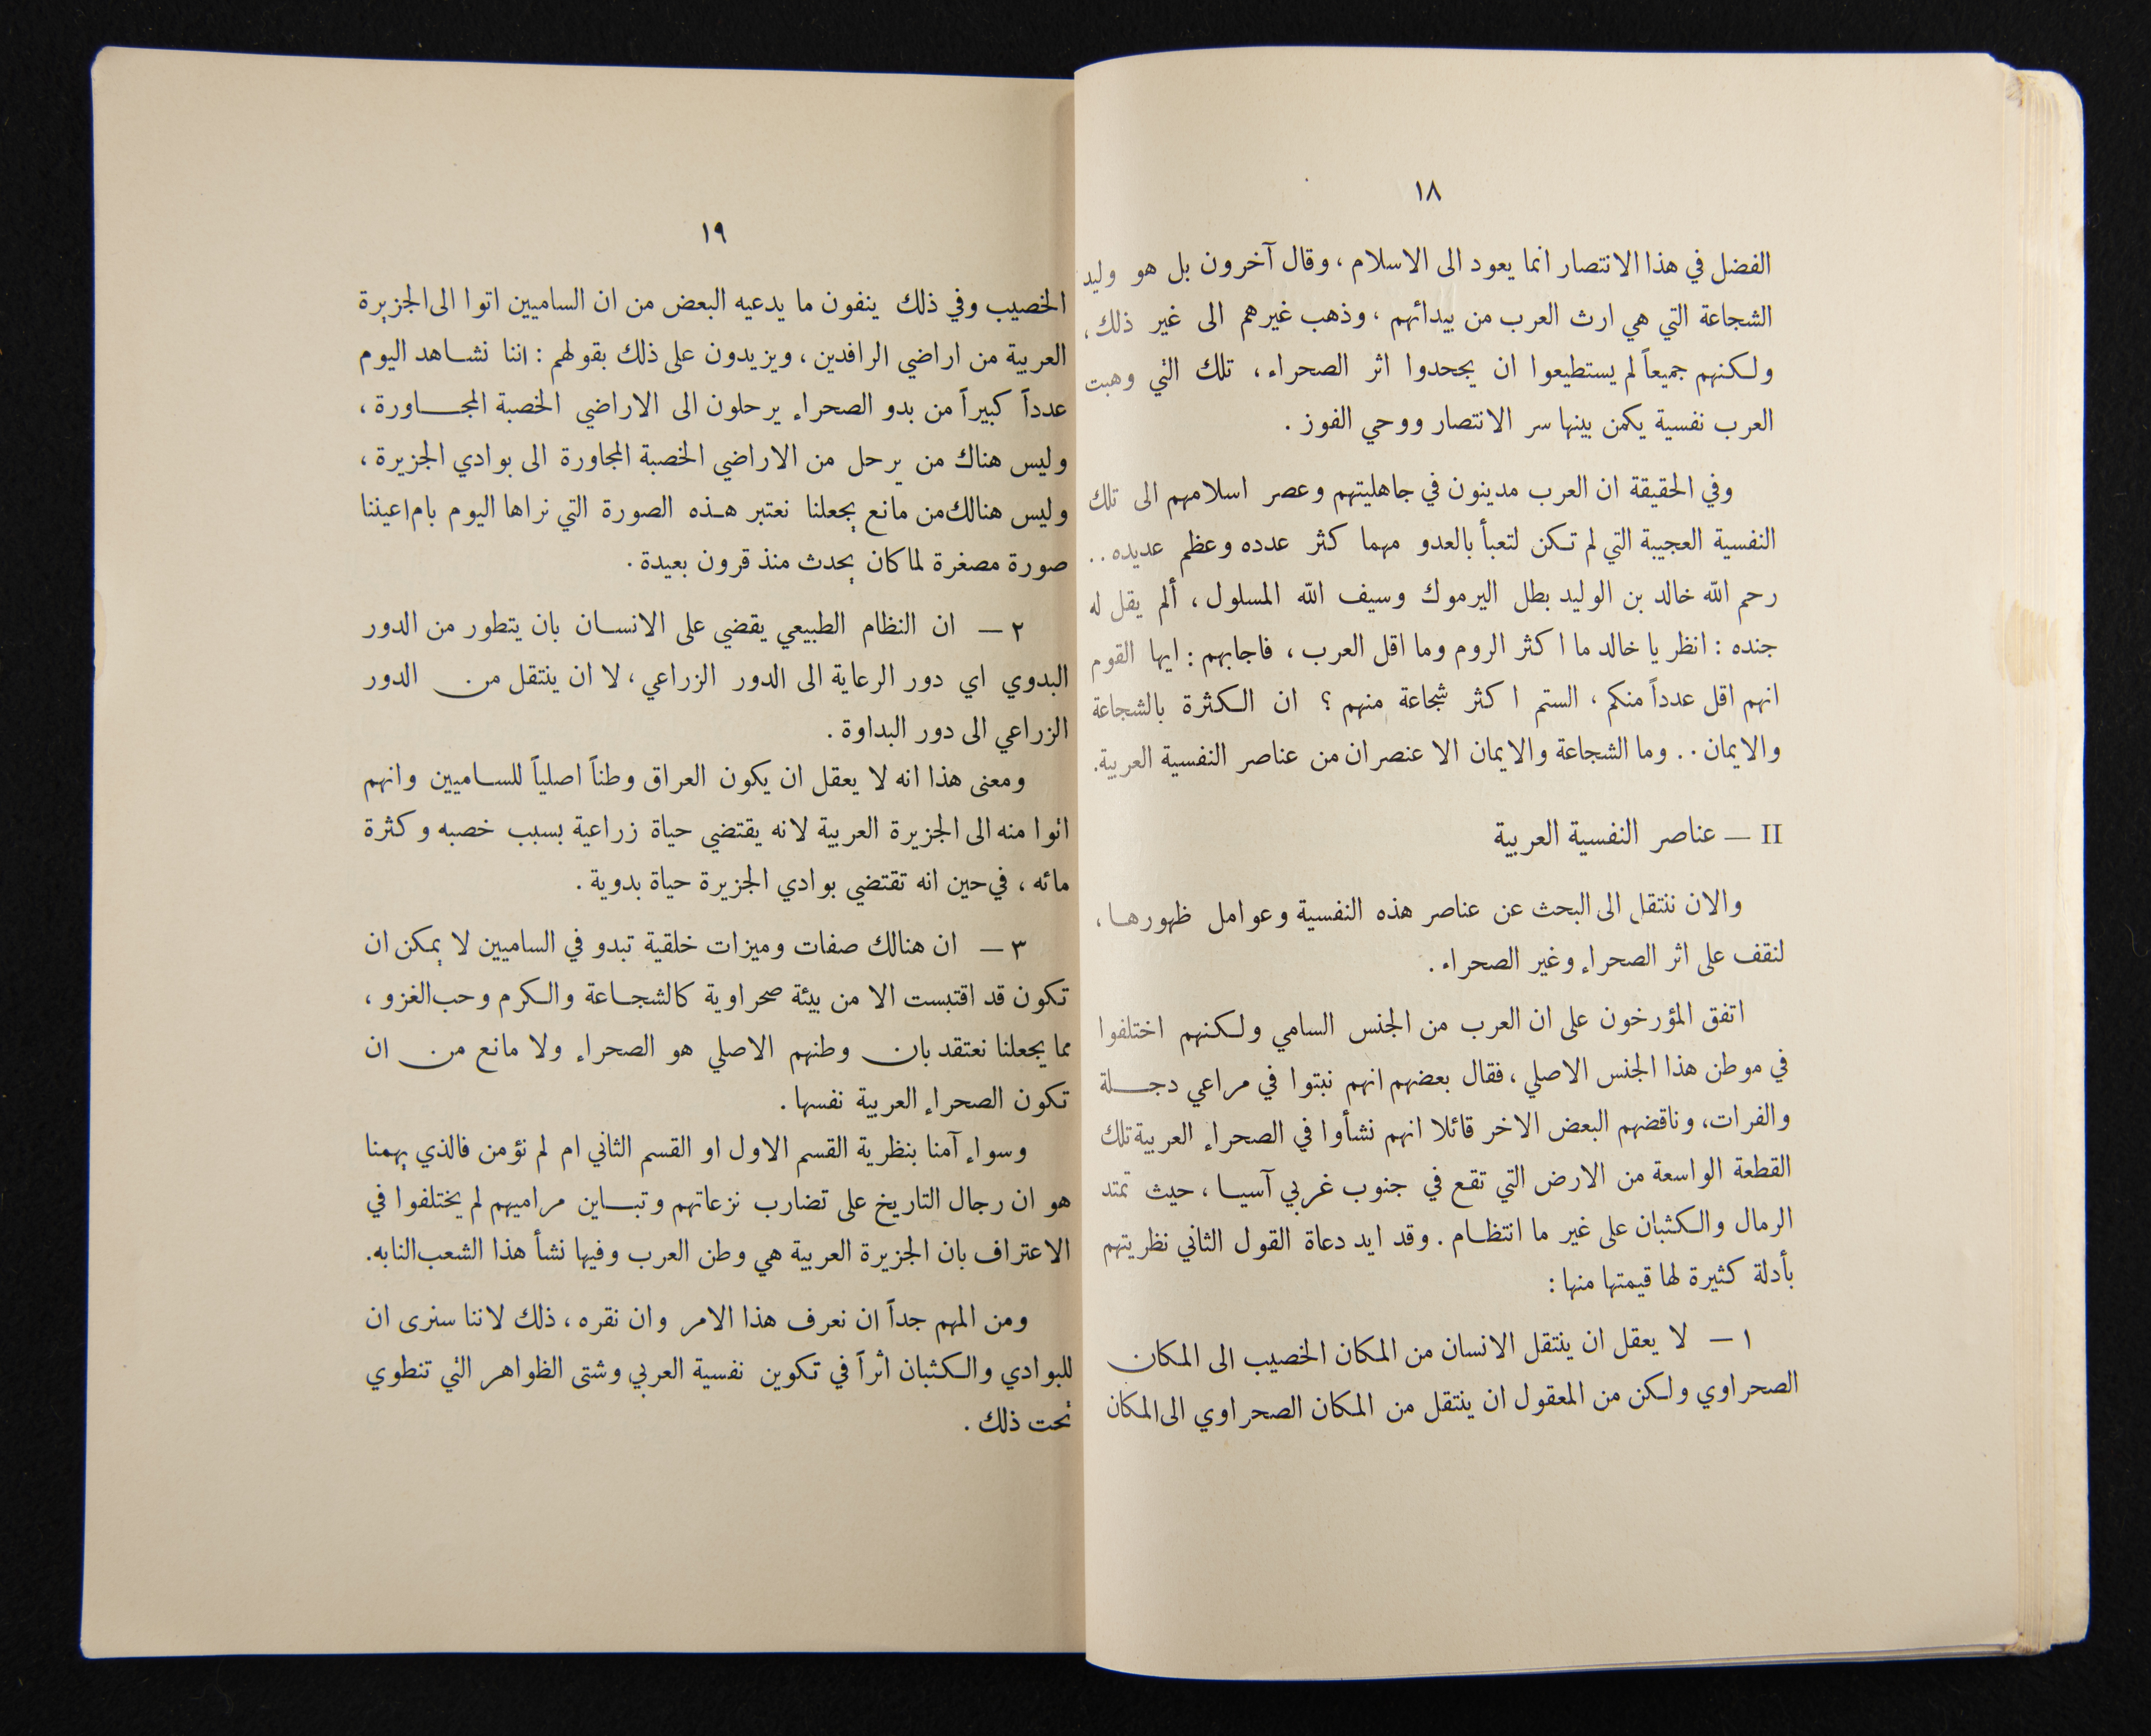 ١٨
الفضل في هذا الانتصار انما يعود الى الاسلام ، وقال آخرون بل هو وليد
الشجاعة التي هي ارث العرب من بيدائهم ، وذهب غيرهم الى غير ذلك ،
ولكنهم جميعاً لم يستطيعوا ان يجحدوا اثر الصحراء ، تلك التي وهبت
العرب نفسية يكمن بينها سر الانتصار ووحي الفوز .
وفي الحقيقة ان العرب مدينون في جاهليتهم وعصر اسلامهم الى تلك
النفسية العجيبة التي لم تكن لتعبأ بالعدو مهما كثر عدده وعظم عديده . .
رحم الله خالد بن الوليد بطل اليرموك وسيف الله المسلول ، ألم يقل له
جنده : انظر يا خالد ما اكثر الروم وما اقل العرب ، فاجابهم : ايها القوم
انهم اقل عدداً منكم ، الستم اكثر شجاعة منهم ؟ ان الكثرة بالشجاعة
والايمان . . وما الشجاعة والايمان الا عنصران من عناصر النفسية العربية.
II — عناصر النفسية العربية
والان ننتقل الى البحث عن عناصر هذه النفسية وعوامل ظهورها ،
لنقف على اثر الصحراء وغير الصحراء .
اتفق المؤرخون على ان العرب من الجنس السامي ولكنهم اختلفوا
في موطن هذا الجنس الاصلي ، فقال بعضهم انهم نبتوا في مراعي دجلة
والفرات، وناقضهم البعض الاخر قائلا انهم نشأوا في الصحراء العربية تلك
القطعة الواسعة من الارض التي تقع في جنوب غربي آسيا ، حيث تمتد
الرمال والكثبان على غير ما انتظام . وقد ايد دعاة القول الثاني نظريتهم
بأدلة كثيرة لها قيمتها منها :
١ — لا يعقل ان ينتقل الانسان من المكان الخصيب الى المكان
الصحراوي ولكن من المعقول ان ينتقل من المكان الصحراوي الى المكان
١٩
الخصيب وفي ذلك ينفون ما يدعيه البعض من ان الساميين اتوا الى الجزيرة
العربية من اراضي الرافدين ، ويزيدون على ذلك بقولهم : اننا نشاهد اليوم
عدداً كبيراً من بدو الصحراء يرحلون الى الاراضي الخصبة المجاورة ،
وليس هناك من يرحل من الاراضي الخصبة المجاورة الى بوادي الجزيرة ،
وليس هنالك من مانع يجعلنا نعتبر هذه الصورة التي نراها اليوم بام اعيننا
صورة مصغرة لما كان يحدث منذ قرون بعيدة .
٢ — ان النظام الطبيعي يقضي على الانسان بان يتطور من الدور
البدوي اي دور الرعاية الى الدور الزراعي ، لا ان ينتقل من الدور
الزراعي الى دور البداوة .
ومعنى هذا انه لا يعقل ان يكون العراق وطناً اصلياً للساميين وانهم
اتوا منه الى الجزيرة العربية لانه يقتضي حياة زراعية بسبب خصبه وكثرة
مائه ، في حين انه تقتضي بوادي الجزيرة حياة بدوية .
٣ — ان هنالك صفات وميزات خلقية تبدو في الساميين لا يمكن ان
تكون قد اقتبست الا من بيئة صحراوية كالشجاعة والكرم وحب الغزو ،
مما يجعلنا نعتقد بان وطنهم الاصلي هو الصحراء ولا مانع من ان
تكون الصحراء العربية نفسها .
وسواء آمنا بنظرية القسم الاول او القسم الثاني ام لم نؤمن فالذي يهمنا
هو ان رجال التاريخ على تضارب نزعاتهم وتباين مراميهم لم يختلفوا في
الاعتراف بان الجزيرة العربية هي وطن العرب وفيها نشأ هذا الشعب النابه.
ومن المهم جداً ان نعرف هذا الامر وان نقره ، ذلك لاننا سنرى ان
للبوادي والكثبان اثراً في تكوين نفسية العربي وشتى الظواهر التي تنطوي
تحت ذلك .